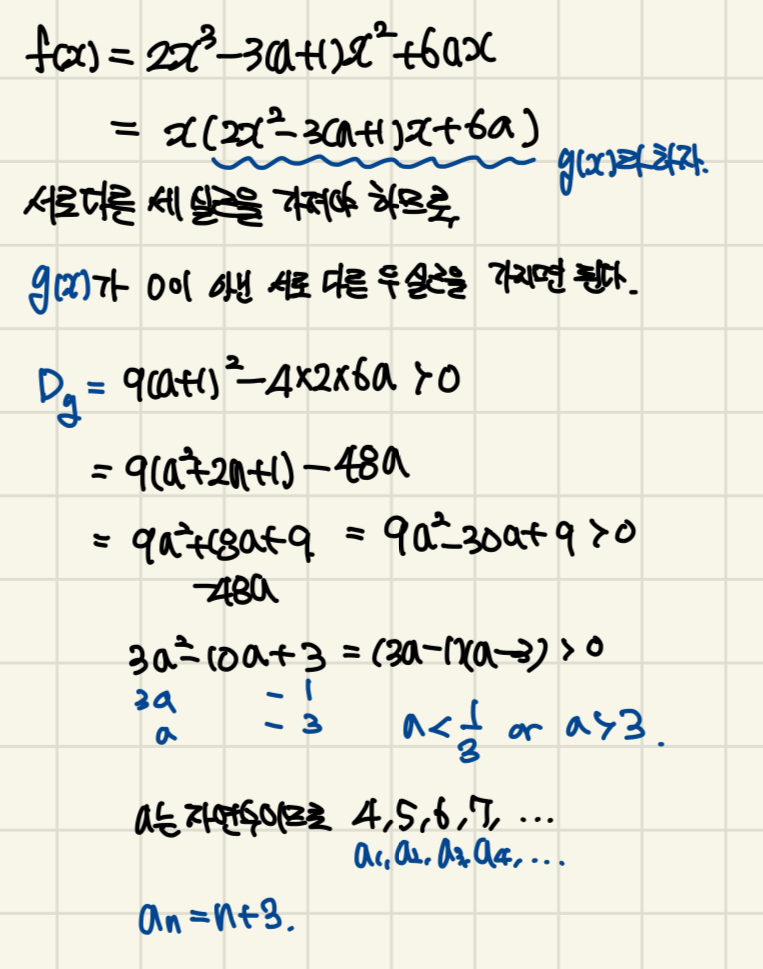 f(x) = 2x³-3(a+1)x²+6ax
= x(2x²-3(a+1)x+6a)
g(x)라 하자.
서로다른 세 실근을 가져야 하므로,
g(x)가 0이 아닌 서로 다른 두 실근을 가지면 된다.
D_g = 9(a+1)²-4×2×6a > 0
= 9(a²+2a+1)-48a
= 9a²+18a+9 = 9a²-30a+9 > 0
-48a
3a²-10a+3 = (3a-1)(a-3) > 0
3a -1
a -3
a < 1/3 or a > 3.
a는 자연수이므로 4, 5, 6, 7, ...
a₁, a₂, a₃, a₄, ...
aₙ = n+3.